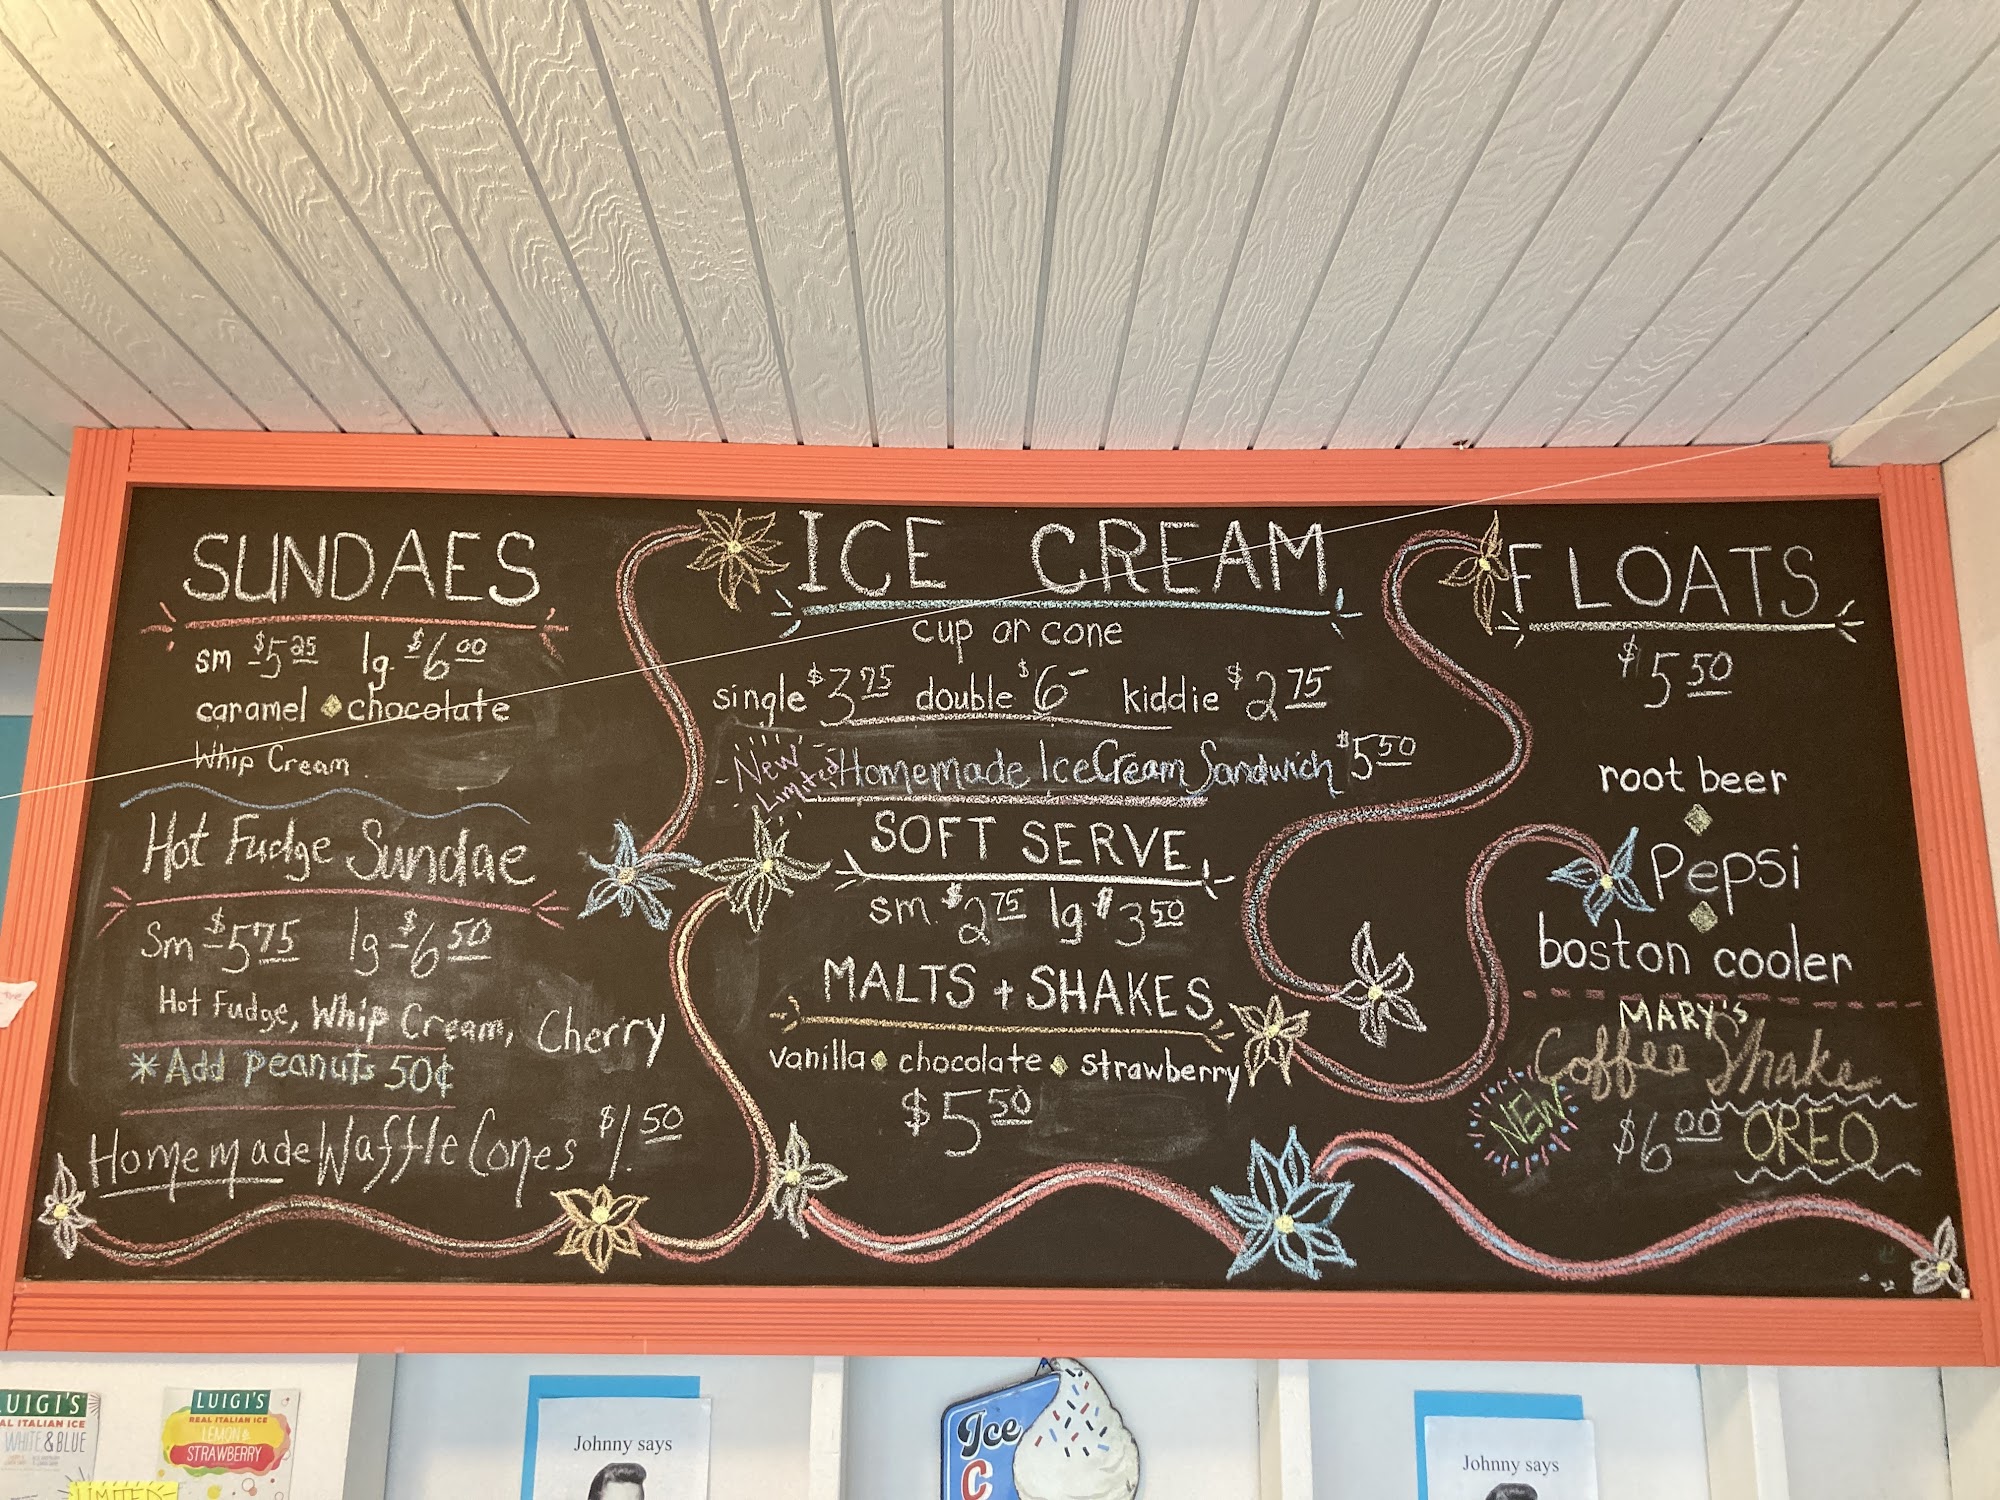 SUNDAES
sm $5.25 lg. $6.00
caramel chocolate
Whip Cream
Hot Fudge Sundae
Sm $5.75 lg $6.50
Hot Fudge, Whip Cream, Cherry
*Add peanuts 50¢
Homemade Waffle Cones $1.50
ICE CREAM
cup or cone
single $3.75 double $6- kiddie $2.75
New Limited Homemade Ice Cream Sandwich $5.50
SOFT SERVE
sm. $2.75 lg $3.50
MALTS + SHAKES
vanilla chocolate strawberry
$5.50
FLOATS
$5.50
root beer
Pepsi
boston cooler
MARY'S
Coffee Shake
NEW $6.00 OREO
LUIGI'S
REAL ITALIAN ICE
LEMON &
STRAWBERRY
WHITE & BLUE
LIMITED
Johnny says
Ice
C
Johnny says